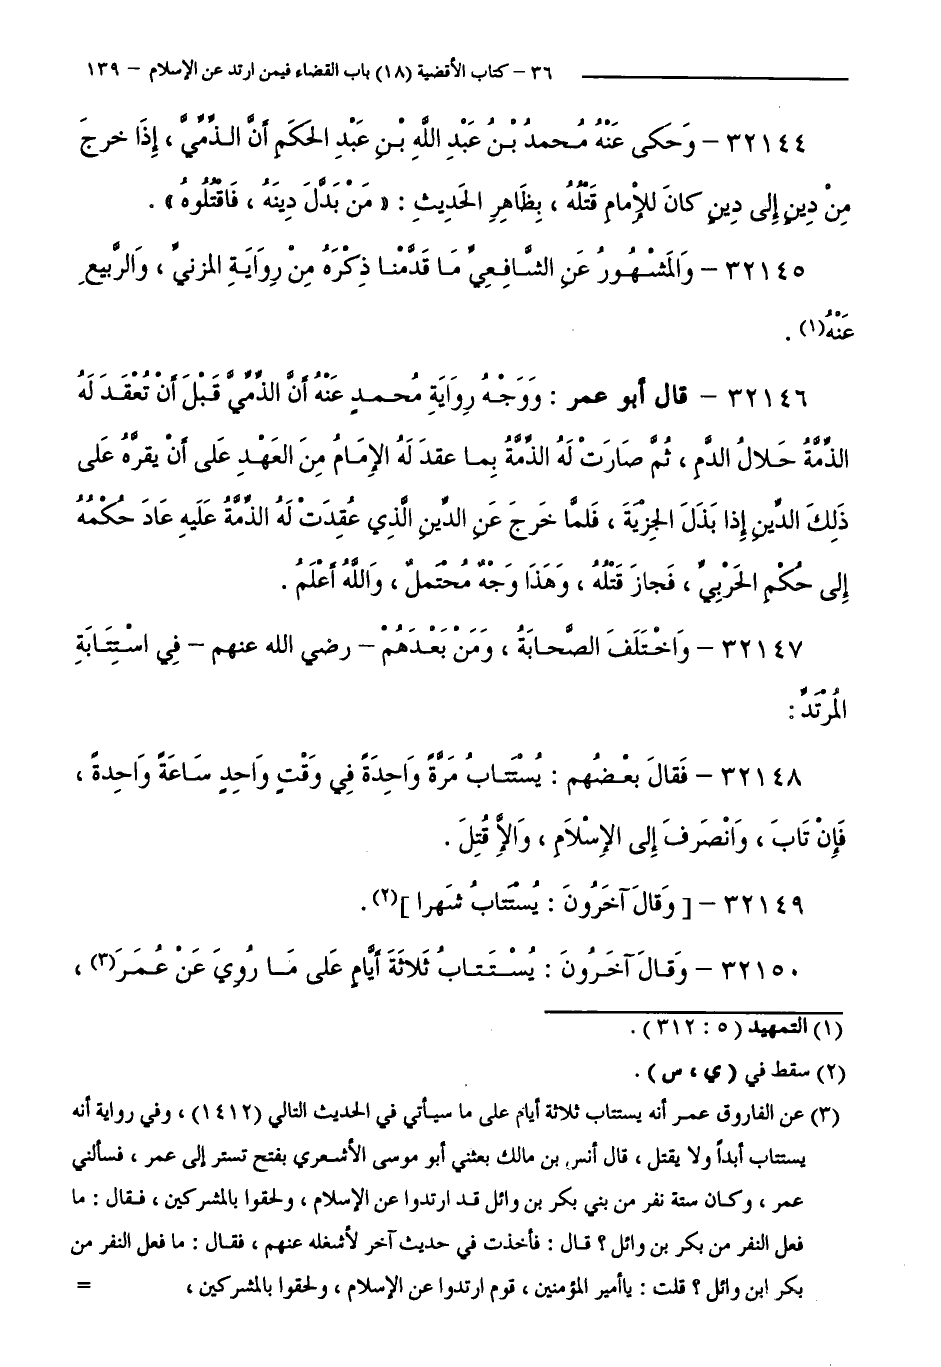 ٣٦ – كتاب الأقضية (١٨) باب القضاء فيمن ارتد عن الإسلام – ١٣٩
٣٢١٤٤ – وَحَكى عَنْهُ مُحمدُ بْنُ عَبْدِ اللَّهِ بْنِ عَبْدِ الحَكَمِ أَنَّ الذِّمِّيَّ ، إِذَا خرجَ
مِنْ دِينٍ إِلى دِينٍ كانَ للإِمامِ قَتْلُهُ ، بِظَاهِرِ الحَديثِ : « مَنْ بَدَّلَ دِينَهُ ، فَاقْتُلُوهُ » .
٣٢١٤٥ – وَالمَشْهُورُ عَنِ الشَّافِعِيِّ مَا قَدَّمْنا ذِكْرَهُ مِنْ رِوايَةِ المزنيِّ ، وَالرَّبيعِ
عَنْهُ(١) .
٣٢١٤٦ – قال أبو عمر : وَوَجْهُ رِوَايَةِ مُحمدٍ عَنْهُ أَنَّ الذِّمِّيَّ قَبْلَ أَنْ تُعْقَدَ لَهُ
الذِّمَّةُ حَلالُ الدَّمِ ، ثُمَّ صَارَتْ لَهُ الذِّمَّةُ بِما عقدَ لَهُ الإِمَامُ مِنَ العَهْدِ عَلى أَنْ يقرَّهُ عَلى
ذَلِكَ الدِّينِ إِذا بَذَلَ الجِزْيَةَ ، فَلمَّا خرَجَ عَنِ الدِّينِ الَّذِي عُقِدَتْ لَهُ الذِّمَّةُ عَلَيهِ عَادَ حكْمُهُ
إِلى حُكْمِ الحَرْبِيِّ ، فَجازَ قَتْلُهُ ، وَهَذَا وَجْهٌ مُحْتَملٌ ، وَاللَّهُ أَعْلَمُ .
٣٢١٤٧ – وَاخْتَلَفَ الصَّحابَةُ ، وَمَنْ بَعْدَهُمْ – رضي الله عنهم – فِي اسْتِتَابَةِ
المُرْتَدِّ :
٣٢١٤٨ – فَقالَ بعْضُهُم : يُسْتَتابُ مَرَّةً وَاحِدَةً فِي وَقْتٍ وَاحِدٍ سَاعَةً وَاحِدةً ،
فَإِنْ تابَ ، وَانْصَرفَ إِلى الإِسْلاَمِ ، وَإِلاَّ قُتِلَ .
٣٢١٤٩ – [ وَقالَ آخَرُونَ : يُسْتَتابُ شَهرا ](٢) .
٣٢١٥٠ – وَقَالَ آخَرُونَ : يُسْتَتابُ ثَلاثَةَ أَيَّامٍ عَلى مَا رُوِيَ عَنْ عُمَرَ(٣) ،
(١) التمهيد ( ٥ : ٣١٢ ) .
(٢) سقط في ( ي ، س ) .
(٣) عن الفاروق عمر أنه يستتاب ثلاثة أيام على ما سيأتي في الحديث التالي (١٤١٢) ، وفي رواية أنه
يستتاب أبداً ولا يقتل ، قال أنس بن مالك بعثني أبو موسى الأشعري بفتح تستر إلى عمر ، فسألني
عمر ، وكان ستة نفر من بني بكر بن وائل قد ارتدوا عن الإسلام ، ولحقوا بالمشركين ، فقال : ما
فعل النفر من بكر بن وائل ؟ قال : فأخذت في حديث آخر لأشغله عنهم ، فقال : ما فعل النفر من
بكر ابن وائل ؟ قلت : ياأمير المؤمنين ، قوم ارتدوا عن الإسلام ، ولحقوا بالمشركين ، =